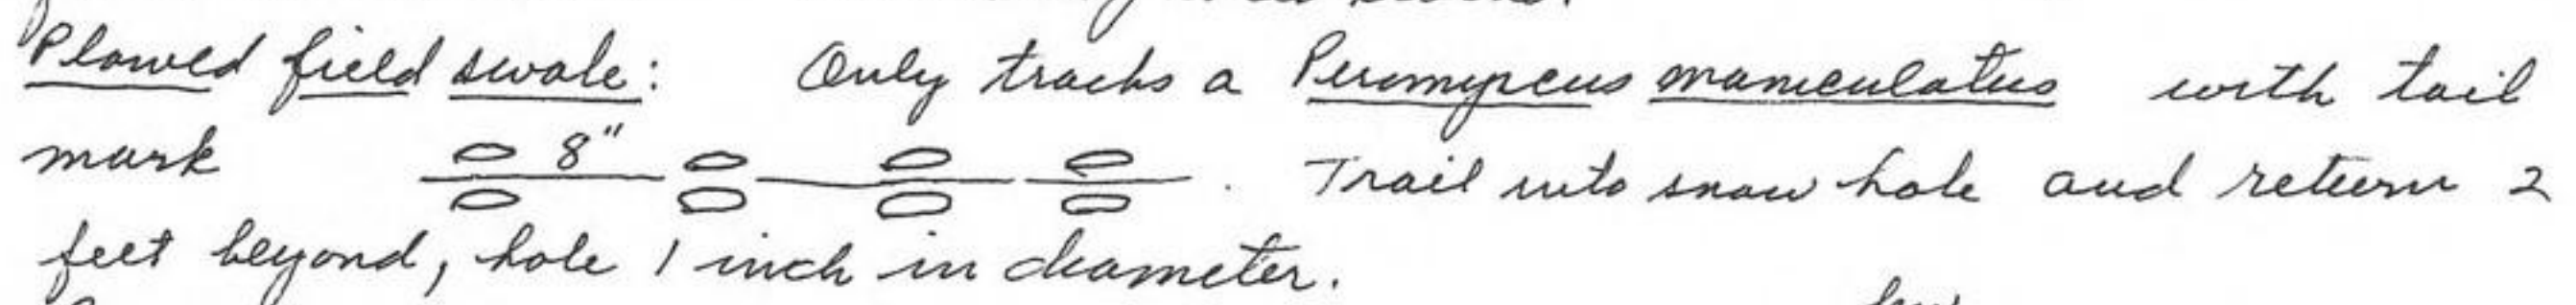 Plowed field swale: Only tracks a Peromyscus maniculatus with tail
mark 8" . Trail into snow hole and return 2
feet beyond, hole 1 inch in diameter.